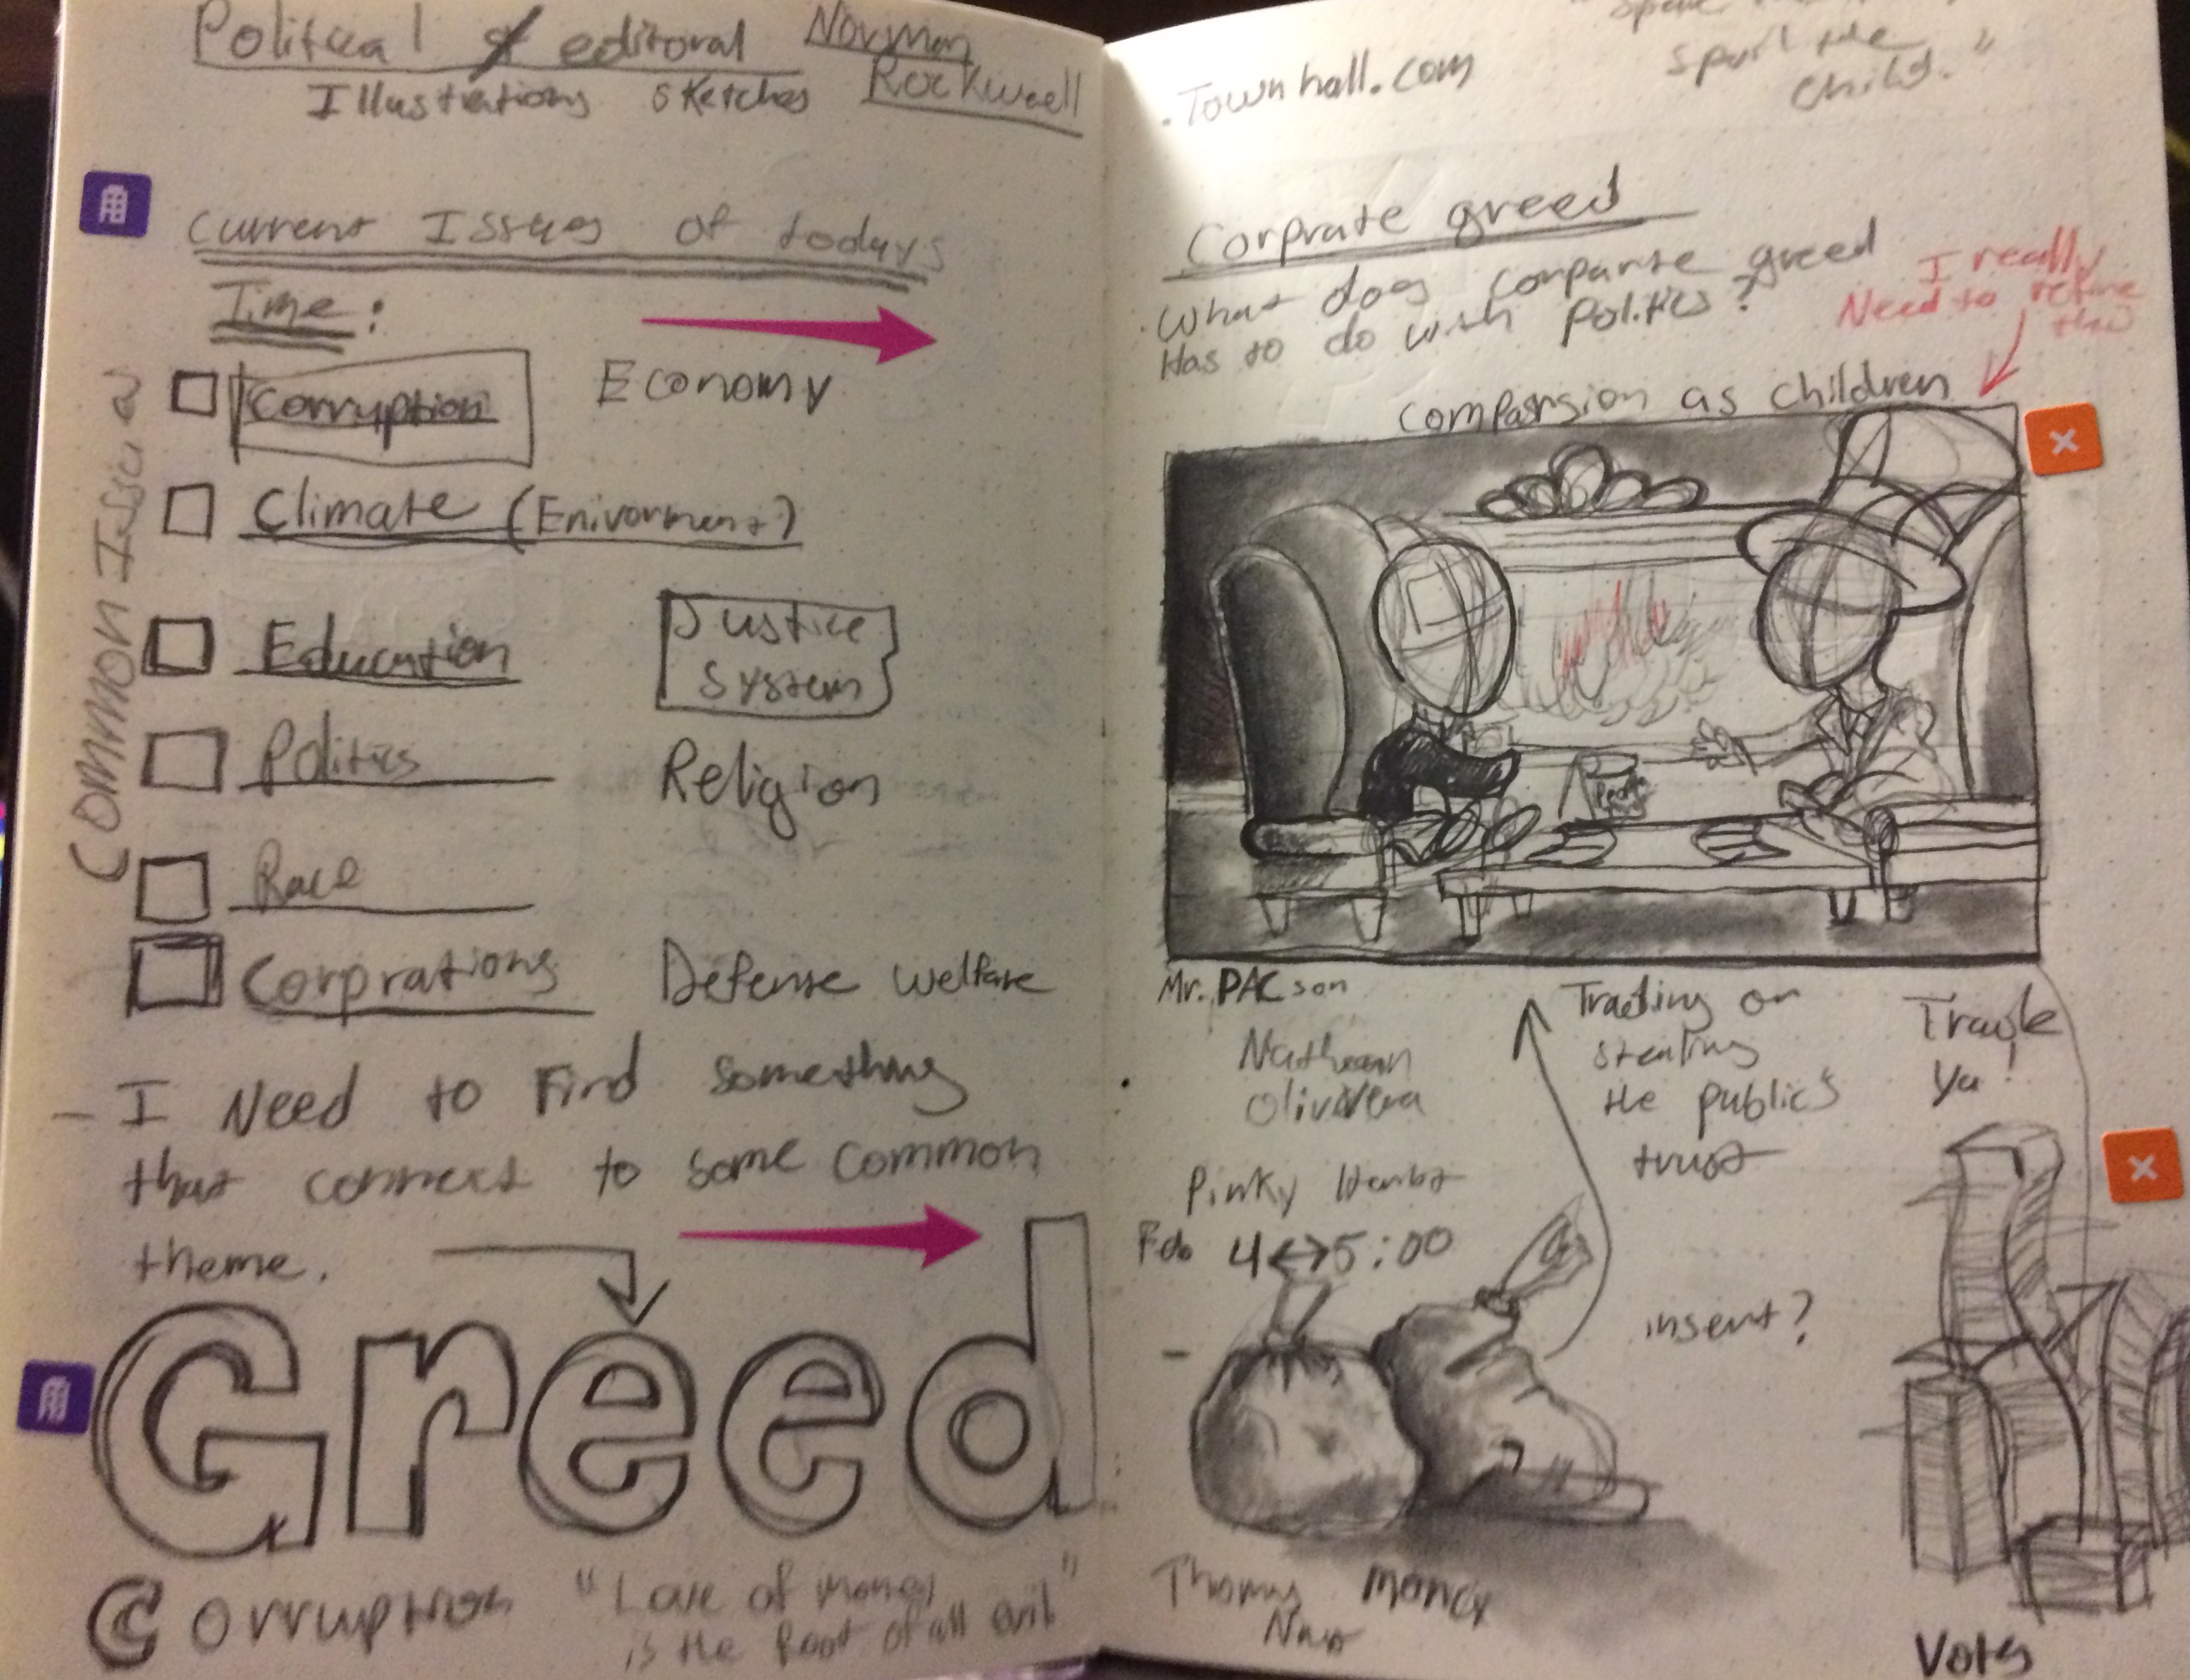 Political & editoral Norman
Illustrations sketches Rockwell
Current Issues of todays
Time:
Common Issues
Corruption Economy
Climate (Enivorment)
Education Justice
System
Politics Religion
Race
Corprations Defense welfare
- I Need to Find something
that connect to some common
theme.
Greed
Corruption "Love of money
is the Root of all evil"
spoil the
child."
. Townhall.com
Corprate greed
. What does corparte greed
Has to do with Politics?
I really
Need to refine
this
comparsion as children
Mr. PAC son
Trading or
stealing
the public's
trust
Trayle
Ya!
Olivera
Pinky
4<->5:00
insert?
Thomas
Nast
Money
Votes